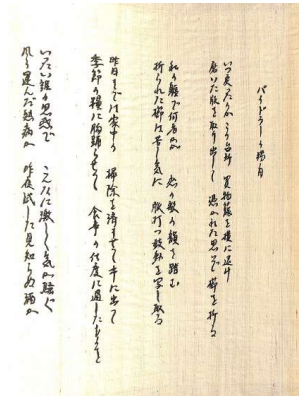 バイブラーの場合
いつ更ったのか この台所 買物籠を横に退け
磨いた肢を取り出して 憑かれた思いで 櫛を折る
私の軀で何者かが 私の髪の鎖を踏む
折られた櫛は苦し気に 脈打つ鼓動を写し取る
昨日までは家中の 掃除を済ませて 牛に出て
季節の種に胸踊らせて 食事の仕度に過したものを
いったい誰の思惑で こんなに激しく 気が騒ぐ
風の運んだ熱病か 昨夜試した見知らぬ酒か